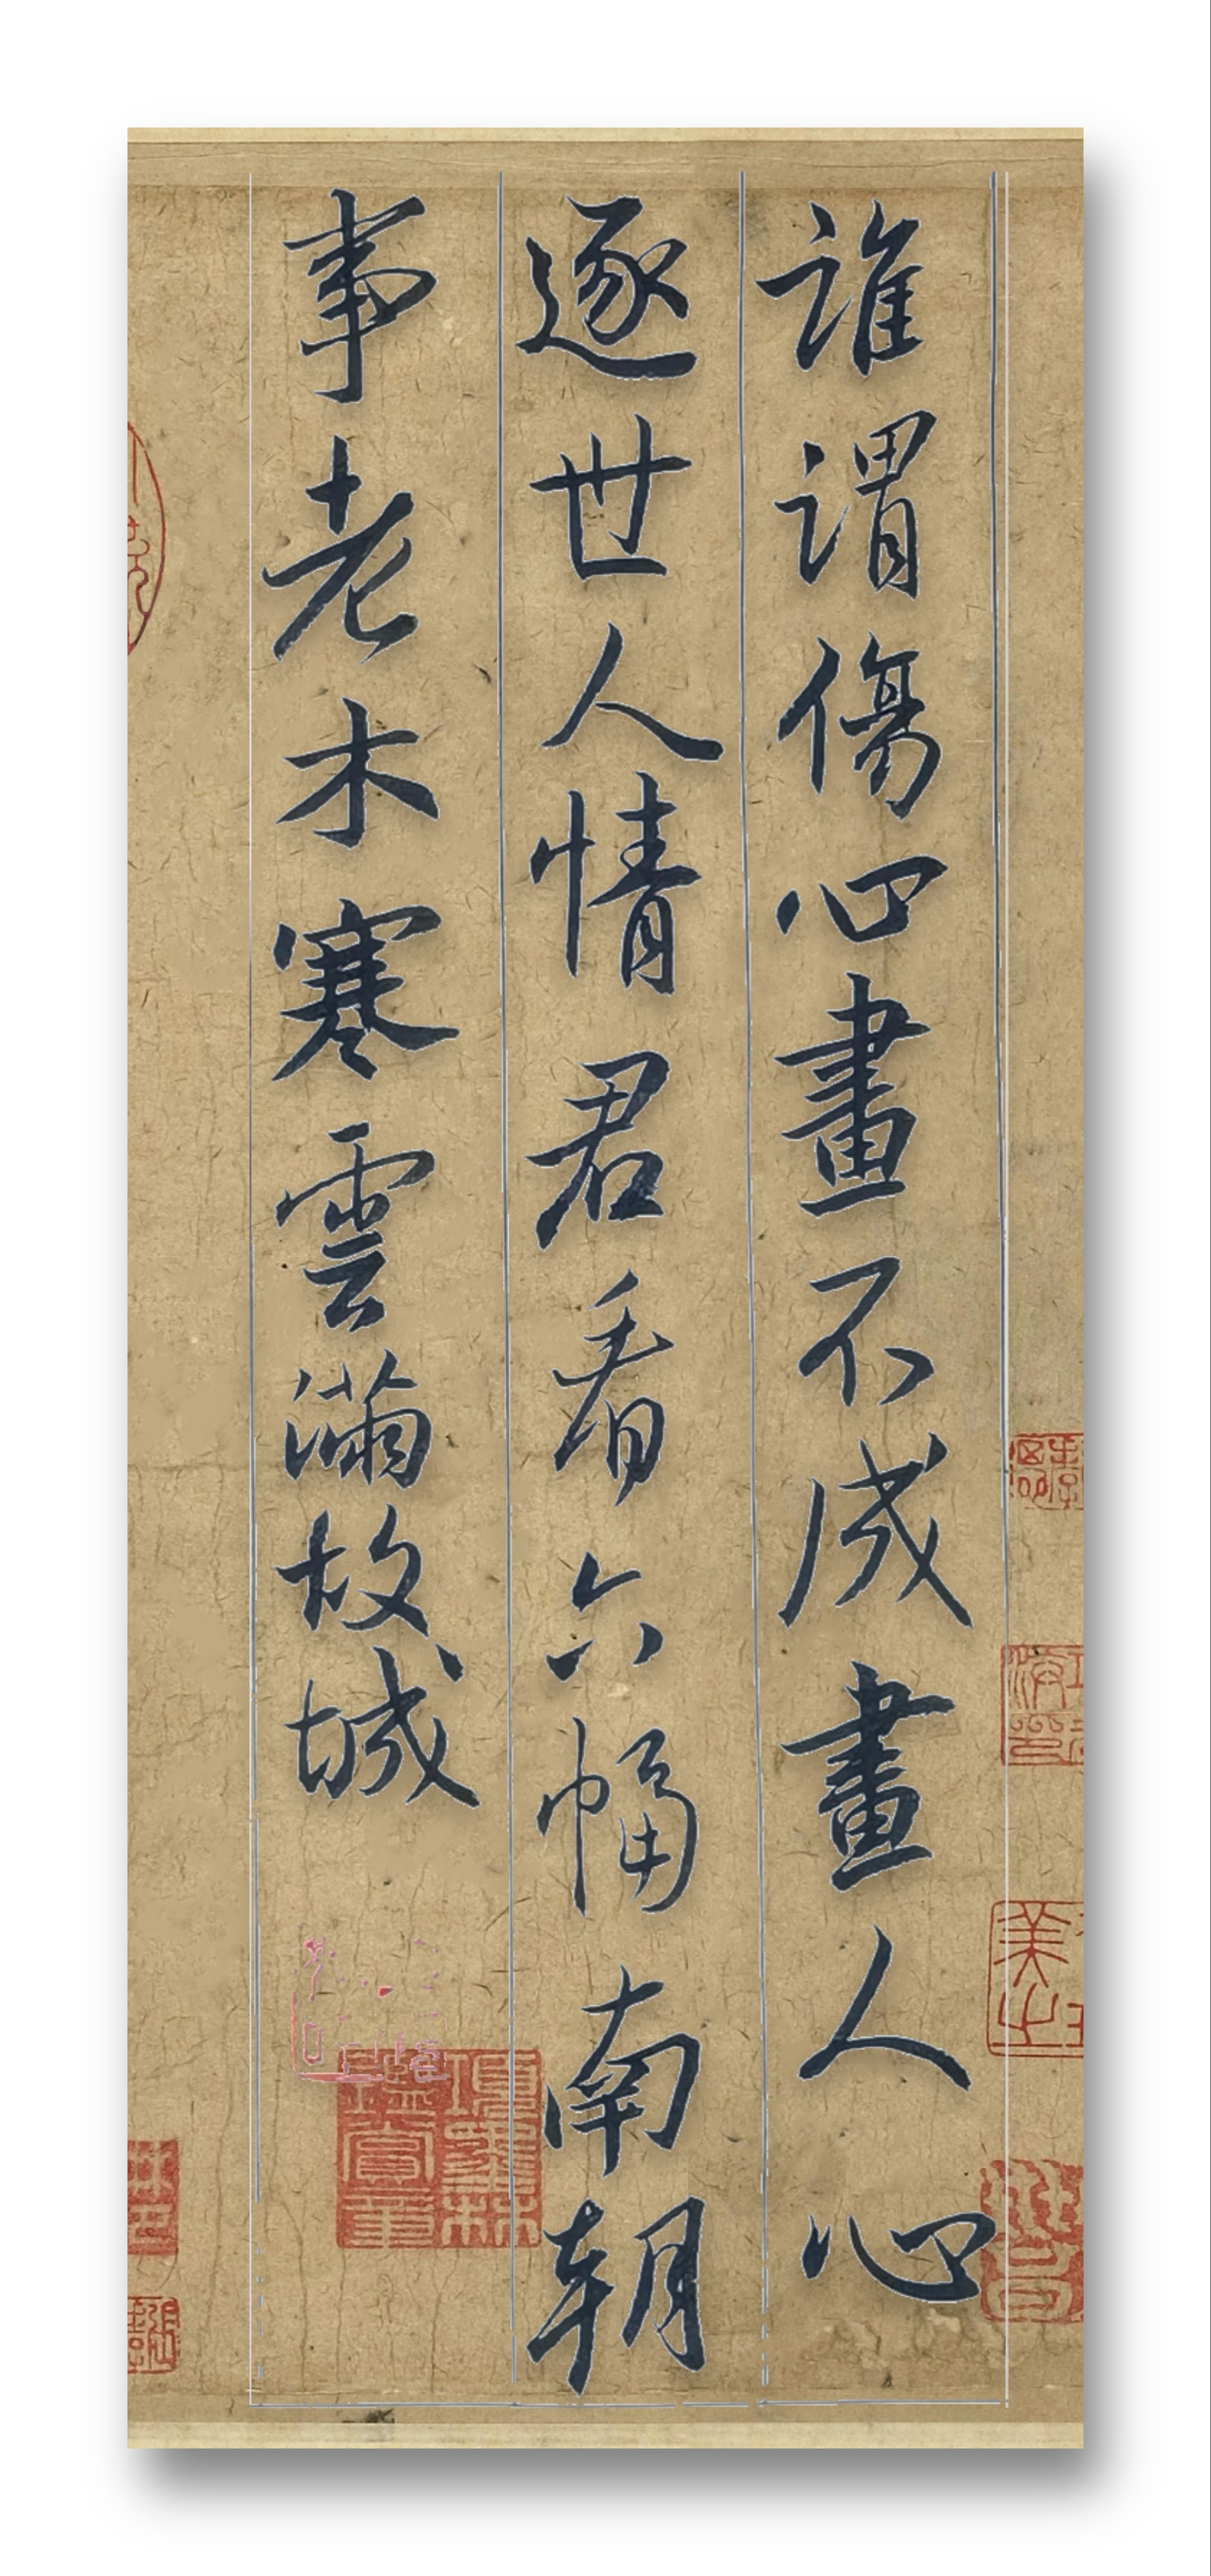 誰謂傷心畫不成畫人心
逐世人情君看六幅南朝
事老木寒雲滿故城